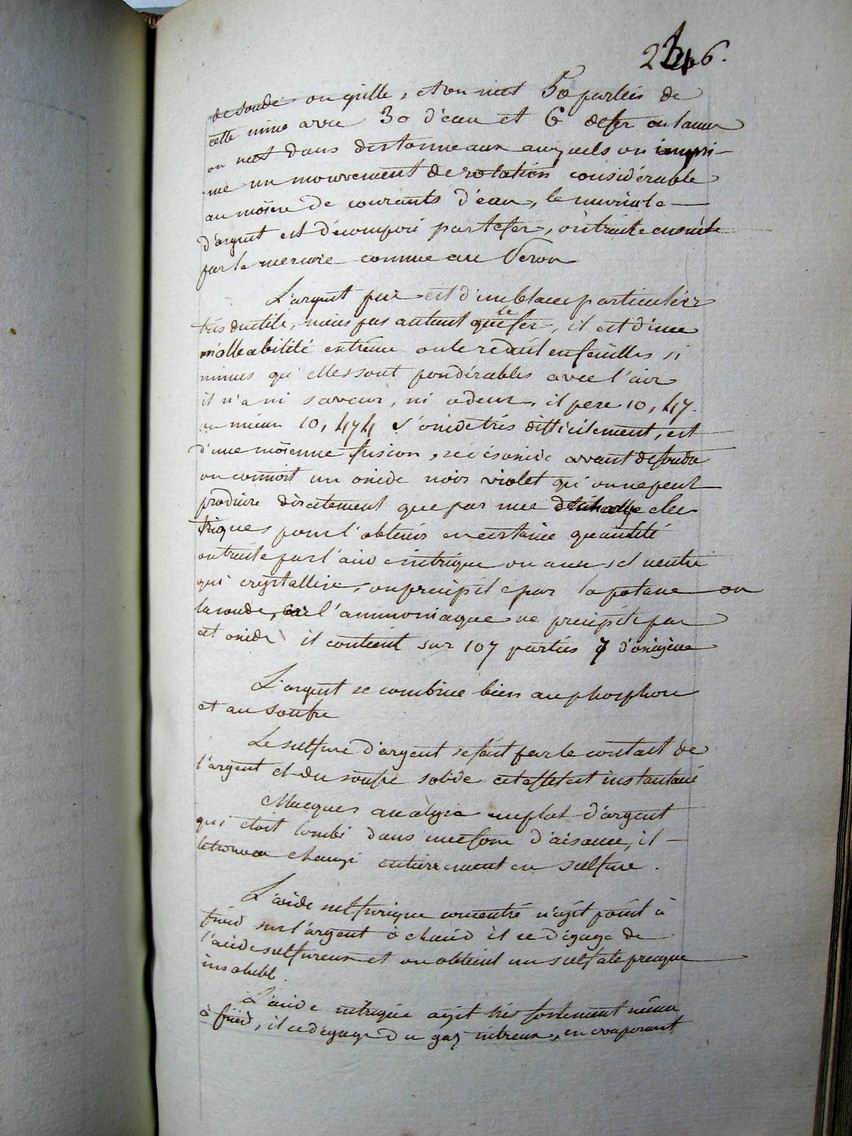 246.
de soude on grille, et on met 50 parties de
cette mine avec 30 d'eau et 6 de fer on la met
on met dans des tonneaux auquels on impri-
-me un mouvement de rotation considérable
au moïen de courants d'eau, le muriate
d'argent est décomposé par le fer, on traite ensuite
par le mercure comme au Perou
L'argent pur est d'un blanc particulier
très ductile, mais pas autant que le fer, il est d'une
malleabilité extrême on le reduit en feuilles si
minces qu'elles sont pondérables avec l'air
il n'a ni saveur, ni odeur, il pese 10,47.
ou mieux 10,474 s'oxide très difficilement, est
d'une moïenne fusion, avant de fondre
on connoit un oxide noir violet qu'on ne peut
produire directement que par une décharge elec-
triques pour l'obtenir en certaine quantité
on traite par l'acide nitrique on a un sel neutre
qui crystallise, on précipite par la potasse ou
la soude, car l'ammoniaque ne precipite pas
cet oxide il contient sur 107 parties 7 d'oxigène
L'argent se combine bien au phosphore
et au soufre
Le sulfure d'argent se fait par le contact de
l'argent et du soufre solide cet effet est instantané
Macquer analysa un plat d'argent
qui étoit tombé dans une fosse d'aisance, il
le trouva changé entièrement en sulfure.
L'acide sulfurique concentré n'agit point à
froid sur l'argent à chaud il se dégage de
l'acide sulfureux et on obtient un sulfate presque
insoluble
L'acide nitrique agit très fortement même
à froid, il se dégage du gaz nitreux, en evaporant